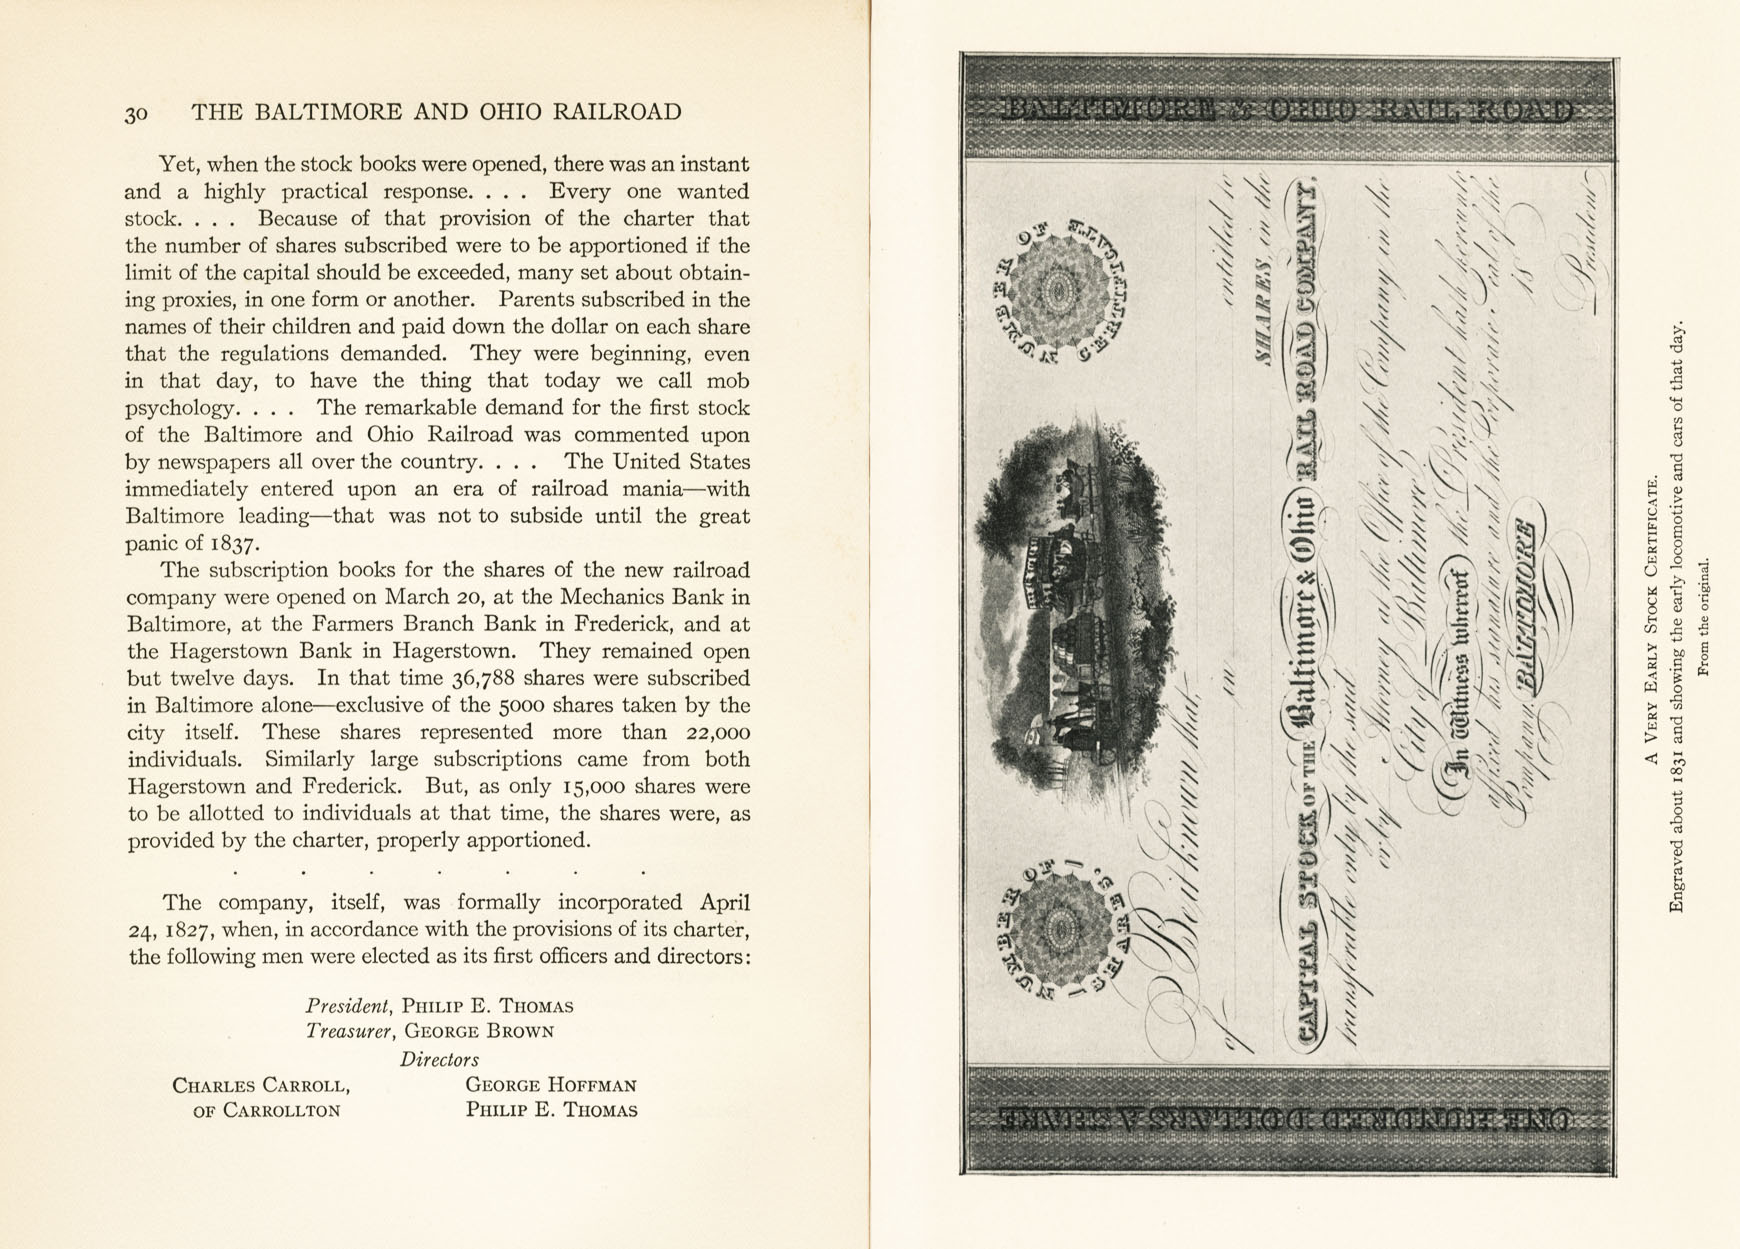 30 THE BALTIMORE AND OHIO RAILROAD
Yet, when the stock books were opened, there was an instant
and a highly practical response. . . . Every one wanted
stock. . . . Because of that provision of the charter that
the number of shares subscribed were to be apportioned if the
limit of the capital should be exceeded, many set about obtain-
ing proxies, in one form or another. Parents subscribed in the
names of their children and paid down the dollar on each share
that the regulations demanded. They were beginning, even
in that day, to have the thing that today we call mob
psychology. . . . The remarkable demand for the first stock
of the Baltimore and Ohio Railroad was commented upon
by newspapers all over the country. . . . The United States
immediately entered upon an era of railroad mania—with
Baltimore leading—that was not to subside until the great
panic of 1837.
The subscription books for the shares of the new railroad
company were opened on March 20, at the Mechanics Bank in
Baltimore, at the Farmers Branch Bank in Frederick, and at
the Hagerstown Bank in Hagerstown. They remained open
but twelve days. In that time 36,788 shares were subscribed
in Baltimore alone—exclusive of the 5000 shares taken by the
city itself. These shares represented more than 22,000
individuals. Similarly large subscriptions came from both
Hagerstown and Frederick. But, as only 15,000 shares were
to be allotted to individuals at that time, the shares were, as
provided by the charter, properly apportioned.
. . . . . . .
The company, itself, was formally incorporated April
24, 1827, when, in accordance with the provisions of its charter,
the following men were elected as its first officers and directors:
President, PHILIP E. THOMAS
Treasurer, GEORGE BROWN
Directors
CHARLES CARROLL, GEORGE HOFFMAN
OF CARROLLTON PHILIP E. THOMAS
ONE HUNDRED DOLLARS A SHARE
NUMBER OF SHARES.
NUMBER OF CERTIFICATE
Be it known that,
of in entitled to
SHARES, in the
CAPITAL STOCK OF THE Baltimore & Ohio RAIL ROAD COMPANY,
transferable only by the said
or by Attorney at the Office of the Company in the
City of Baltimore,
In Witness whereof the President hath hereunto
affixed his signature and the Corporate Seal of the
Company. BALTIMORE 18
President
BALTIMORE & OHIO RAIL ROAD
A VERY EARLY STOCK CERTIFICATE.
Engraved about 1831 and showing the early locomotive and cars of that day.
From the original.